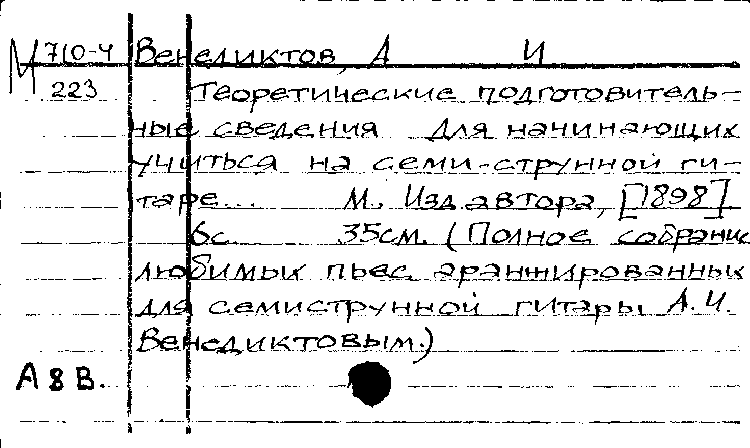 М 710-4 Венедиктов, А И
223 Теоретические подготовитель-
ные сведения для начинающих
учиться на семи-струнной ги-
таре... М. Изд автора, [1898]
6с. 35см. (Полное собрание
любимых пьес аранжированных
для семиструнной гитары А.И.
Венедиктовым.)
А 8 В.